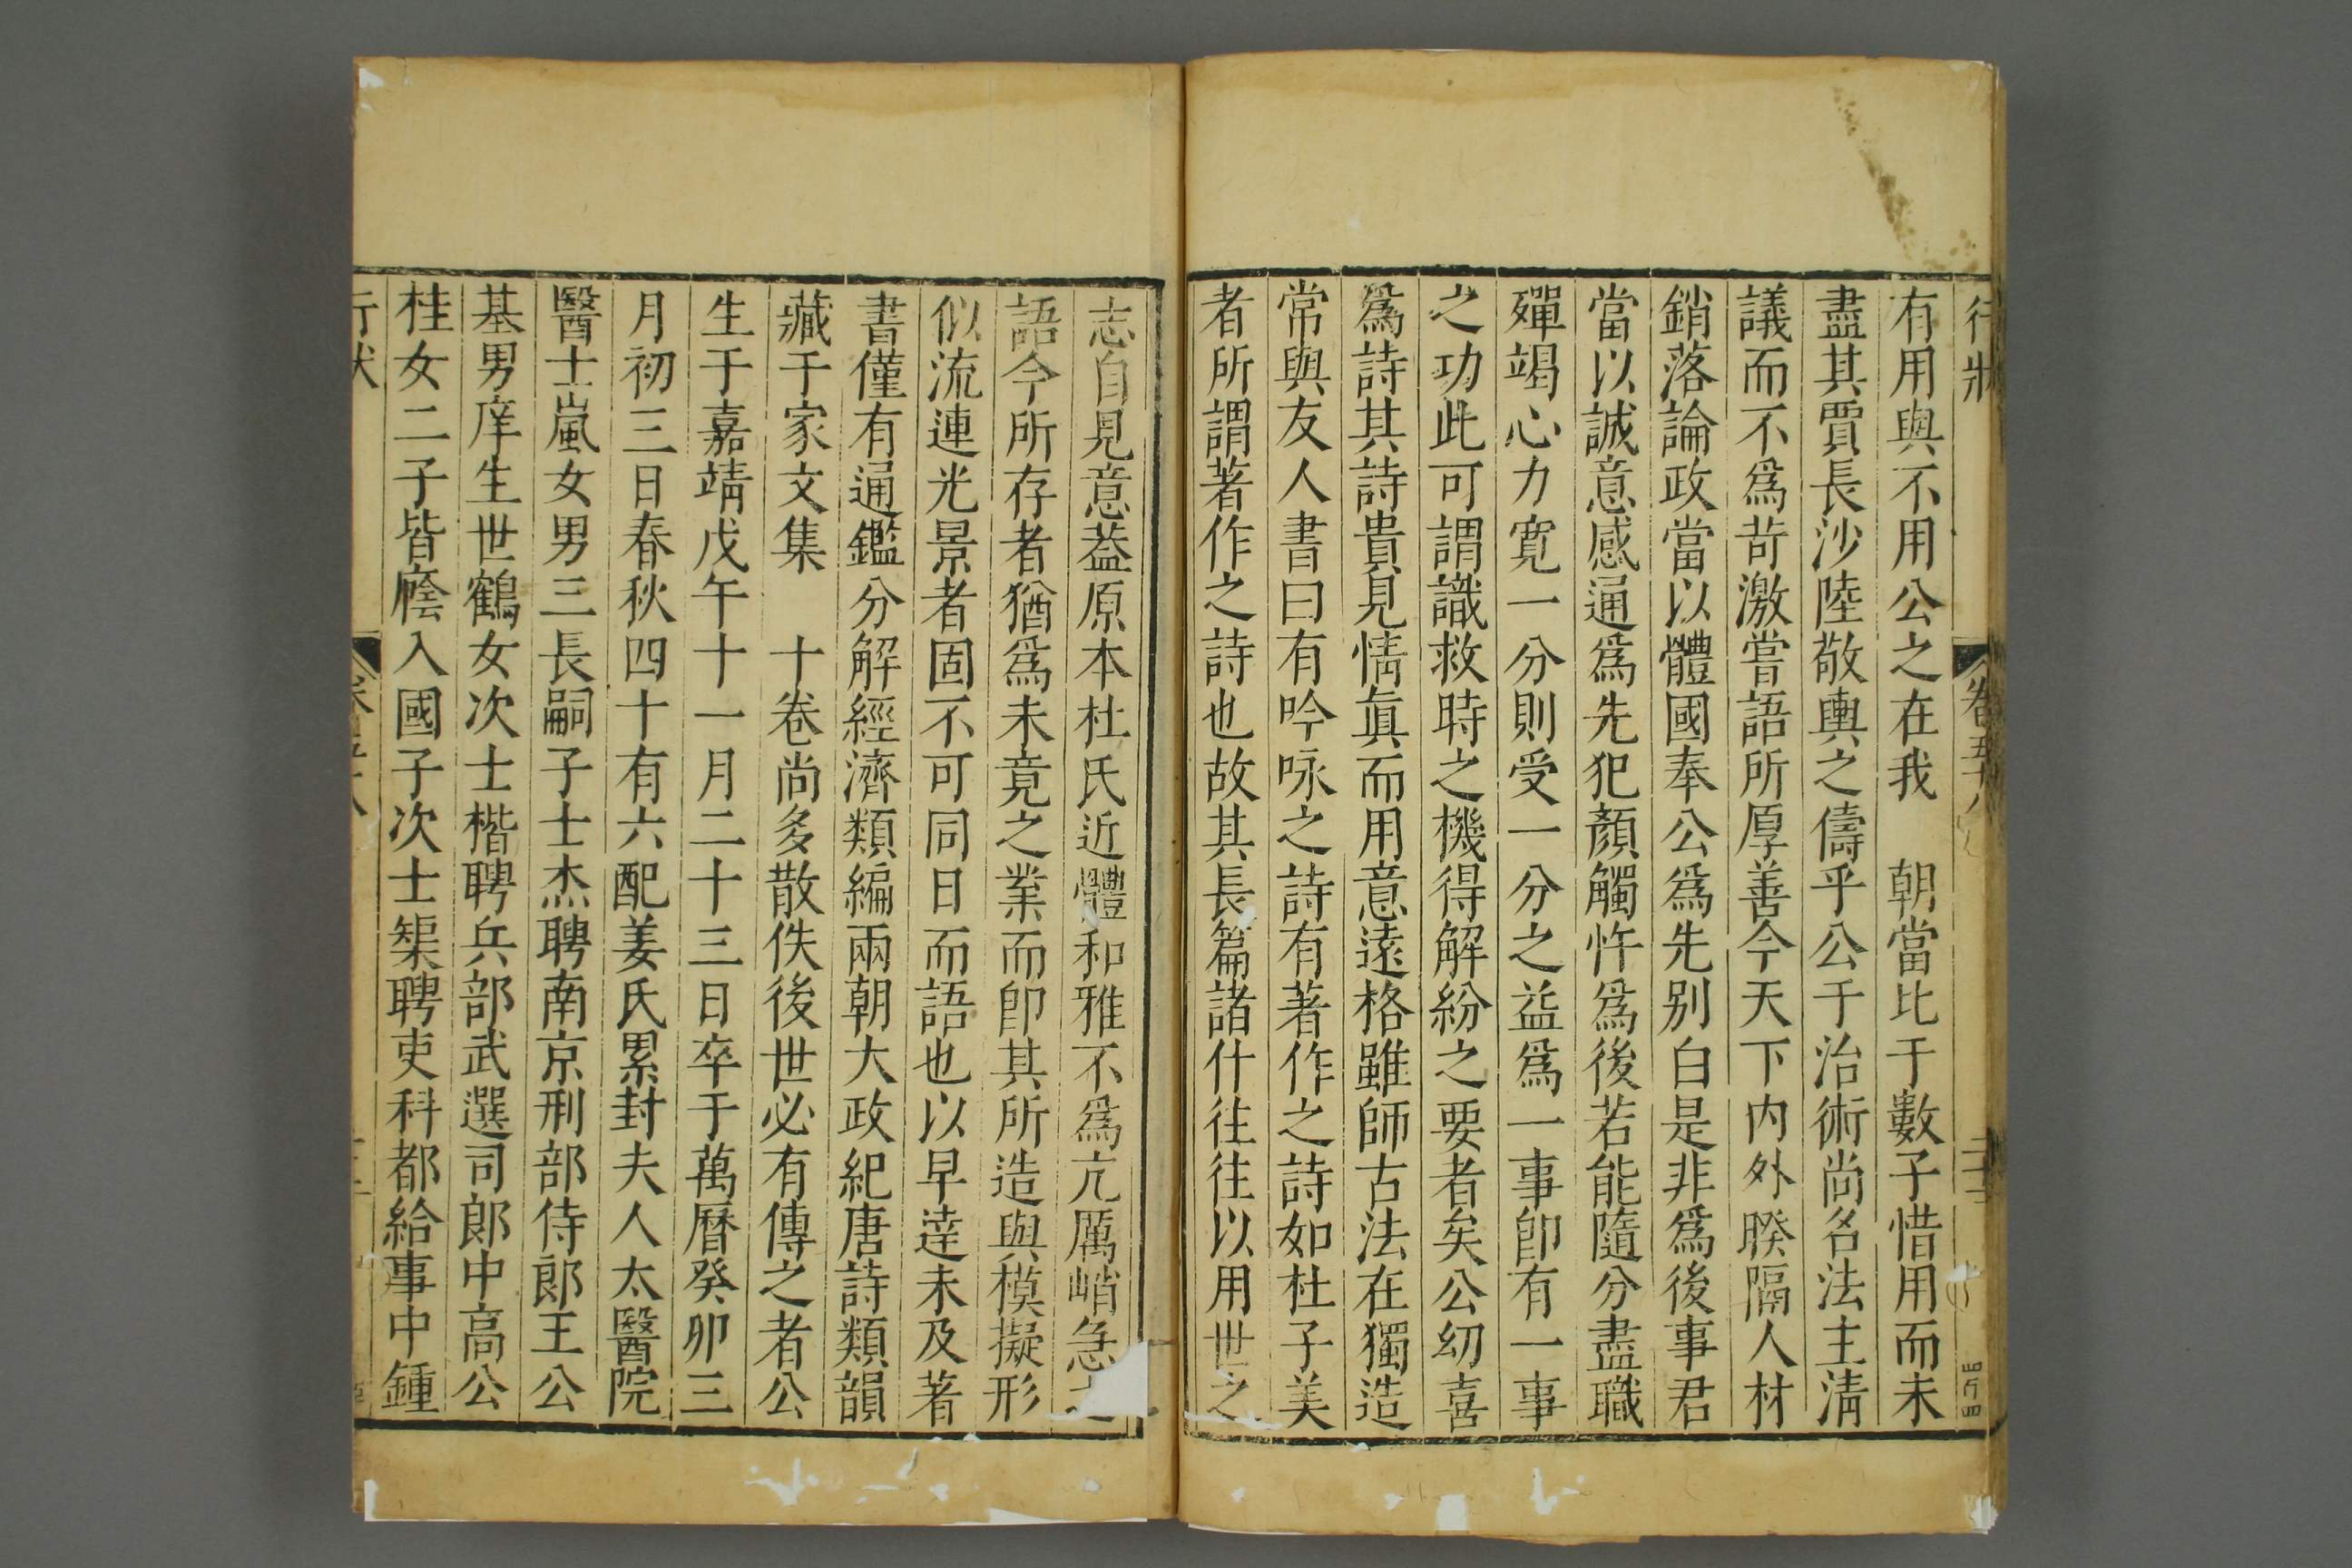 行狀
卷五十八
有用與不用公之在我　朝當比于數子惜用而未
盡其賈長沙陸敬輿之儔乎公于治術尚名法主清
議而不爲苛激嘗語所厚善今天下内外暌隔人材
銷落論政當以體國奉公爲先别白是非爲後事君
當以誠意感通爲先犯顏觸忤爲後若能隨分盡職
殫竭心力寛一分則受一分之益爲一事卽有一事
之功此可謂識救時之機得解紛之要者矣公幼喜
爲詩其詩貴見情眞而用意遠格雖師古法在獨造
常與友人書曰有吟咏之詩有著作之詩如杜子美
者所謂著作之詩也故其長篇諸什往往以用世之
志自見意葢原本杜氏近體和雅不爲亢厲峭急之
語今所存者猶爲未竟之業而卽其所造與模擬形
似流連光景者固不可同日而語也以早逹未及著
書僅有通鑑分解經濟類編兩朝大政紀唐詩類韻
藏于家文集　十卷尚多散佚後世必有傳之者公
生于嘉靖戊午十一月二十三日卒于萬曆癸卯三
月初三日春秋四十有六配姜氏累封夫人太醫院
醫士嵐女男三長嗣子士杰聘南京刑部侍郎王公
基男庠生世鶴女次士楷聘兵部武選司郎中高公
桂女二子皆廕入國子次士榘聘吏科都給事中鍾
行狀